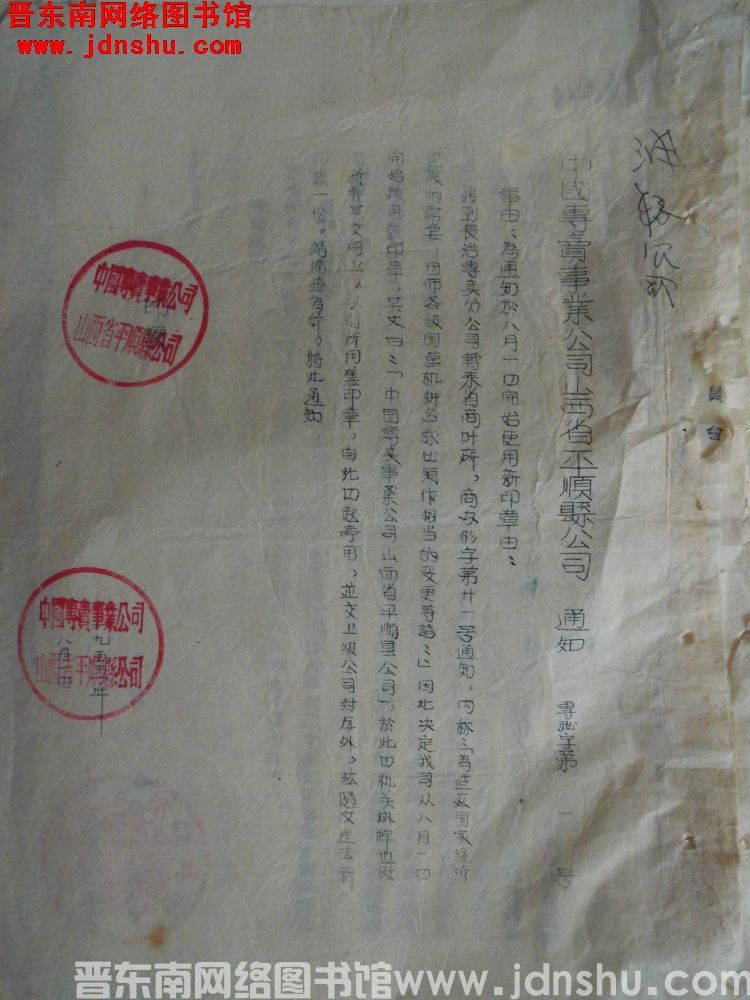 晋东南网络图书馆
www.jdnshu.com
中國專賣事業公司山西省平順縣公司 通知 專祕字第 一 号
事由：為通知於八月一日開始使用新印章由：
接到長治專卖分公司轉来省商叶所，商 字第廿一号通知，内称：「為适应国家經济
的需要，因而各級国营机 名称也須作相当的变更等語：」因此决定我司从八月一日
開始啟用新印章，其文曰：「中国專卖事業公司山西省平順县公司」，於此日机关掛牌也改
其文同上。前所用舊印章，自此日起停用，並交上級公司封存外，兹隨文送去新
印模一份。請備查為荷。特此通知
中國專賣事業公司
山西省平順縣公司
中國專賣事業公司
山西省平順縣公司
八月一日
晋东南网络图书馆www.jdnshu.com